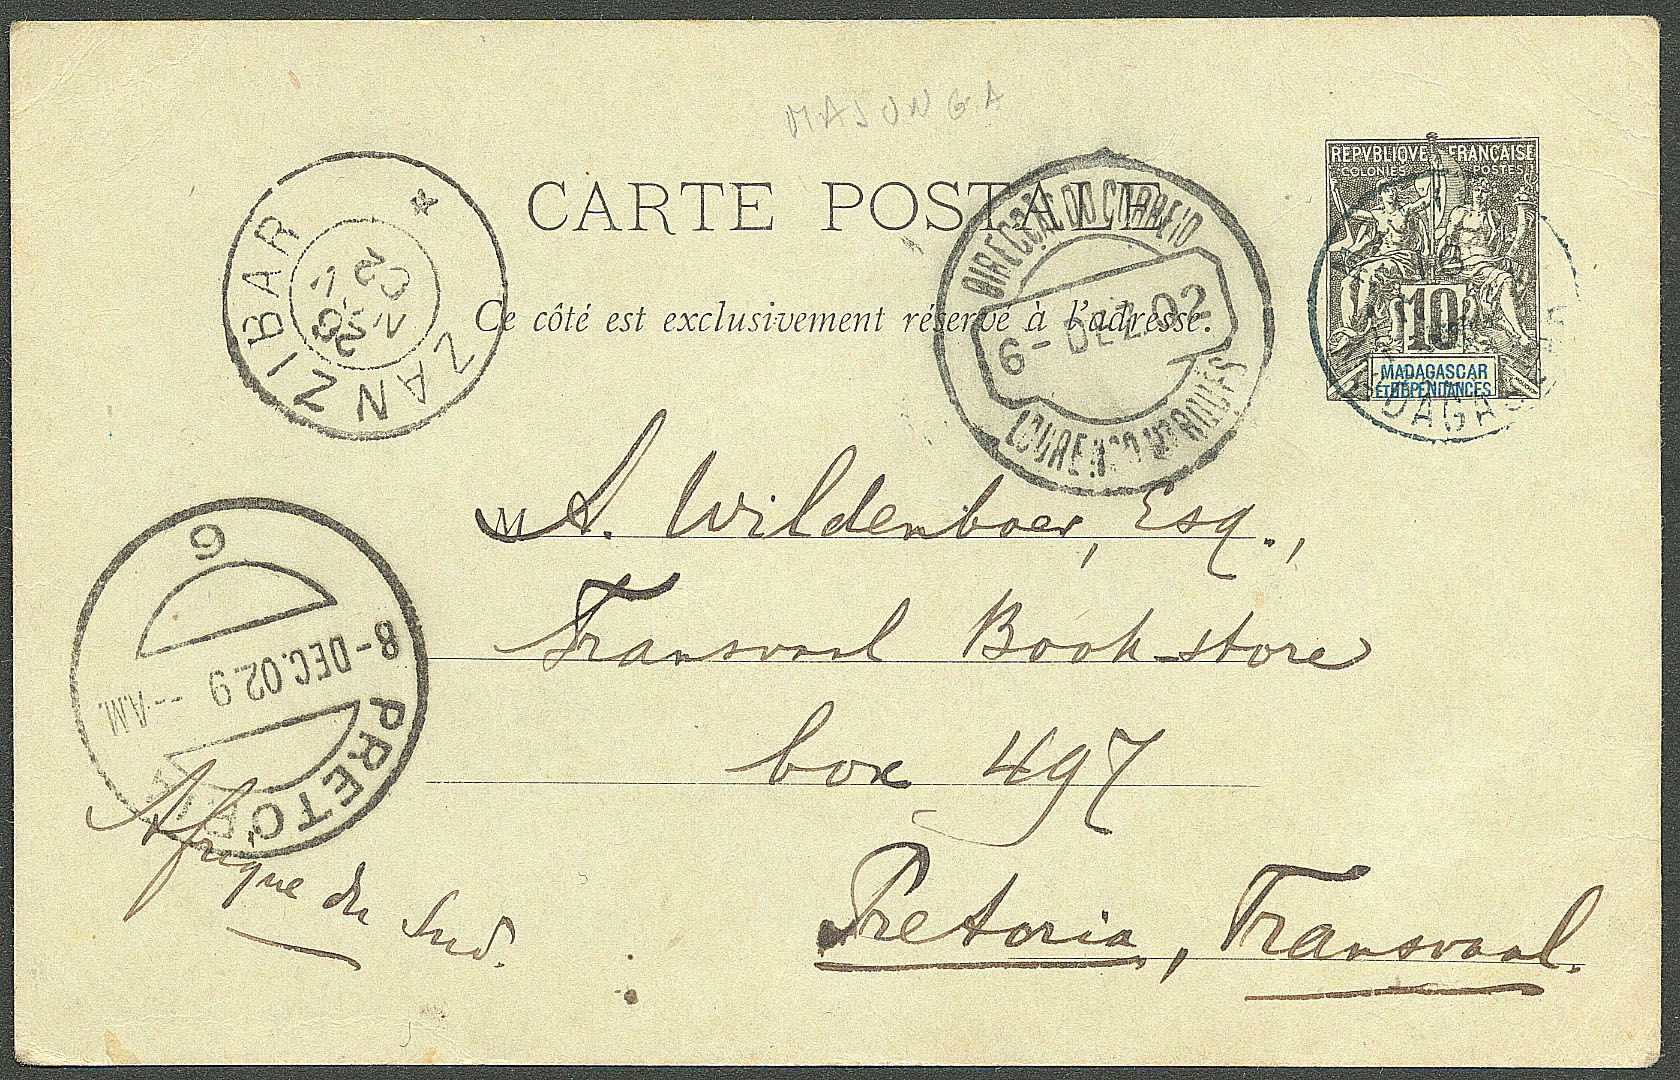 MAJUNGA
CARTE POSTALE
Ce côté est exclusivement réservé à l'adresse.
REPVBLIQVE FRANÇAISE
COLONIES POSTES
10
MADAGASCAR
ET DÉPENDANCES
ZANZIBAR ZAN
NO 26
02
DIRECÇÃO DO CORREIO
6-DEZ.02
LOURENÇO MARQUES
M A. Wildenboer, Esq.,
Transvaal Book-store
box 497
Pretoria, Transvaal.
Afrique du Sud.
6
8-DEC.02.9 --A.M.
PRETORIA